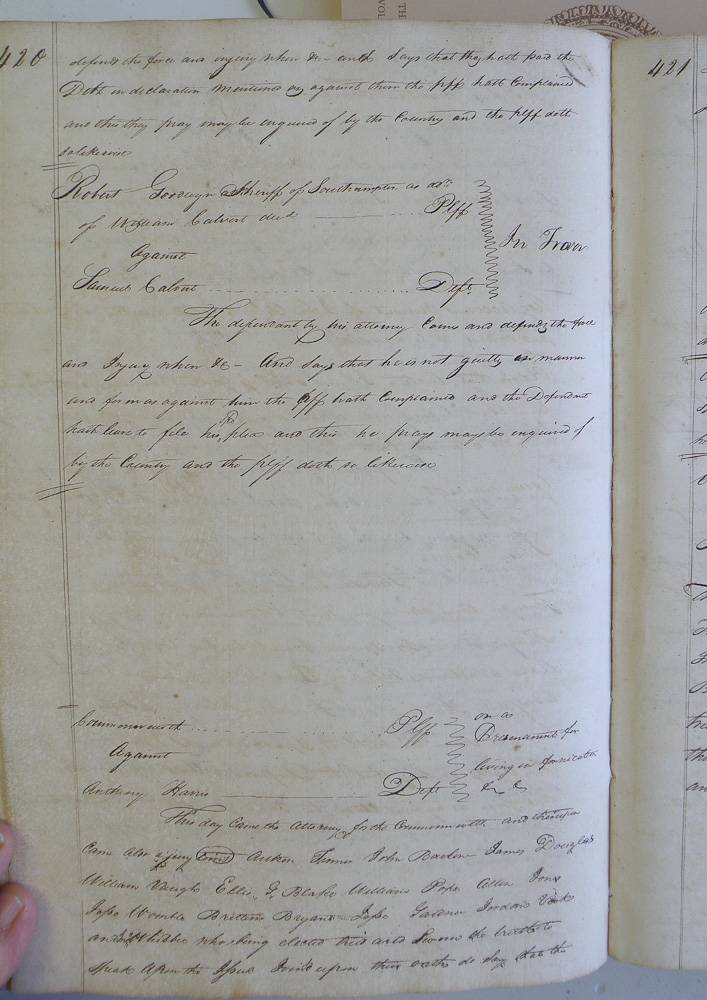 420
defends the force and injury when &c and says that they hath paid the
Debt in declaration mentioned as against them the plff hath Complained
and this they pray may be enquired of by the Country and the plff doth
so likewise
Robert Goodwyn Sheriff of Southampton as adr.
of William Calvert decd Plff
Against
In Trover
Samuel Calvert Deft.
The defendant by his attorney Comes and defends the force
and Injury when &c - And says that he is not guilty in manner
and form as against him the plff hath Complained and the Defendant
hath leave to file his plea and this he prays may be enquired of
by the Country and the plff doth so likewise
Commonwealth Plff
on a
Presentment for
Against
living in fornication
Anthony Harris Deft
&c &c
This day Came the Attorney for the Commonwealth and thereupon
Came also a jury to wit Turner John Barlow James Douglas
William Vaughn Ellis G. Blake William Pope Allen Jones
Jesse Womble Brittain Bryant Jesse Gardner Jordan
and who being elected tried and Sworn the truth to
Speak Upon the Issue Joined upon their oaths do Say that the
421
TH
VOL